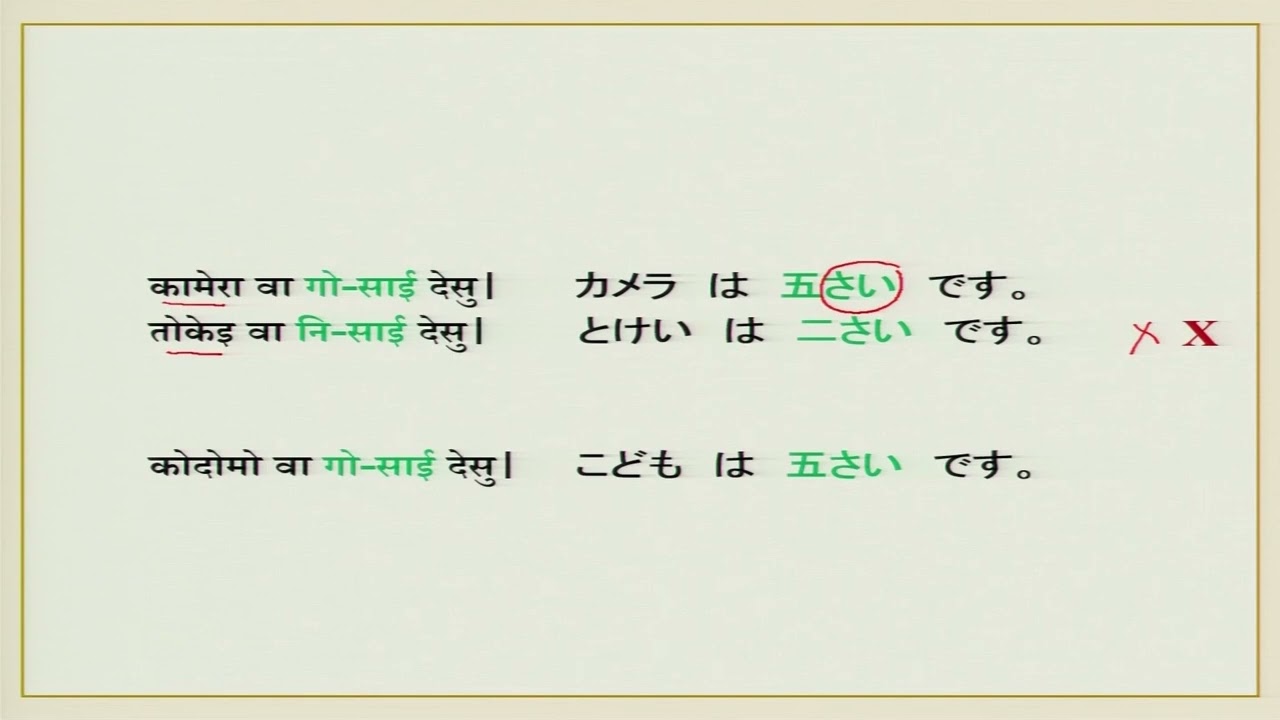 कामेरा वा गो-साई देसु| カメラ は 五さい です。
तोकेइ वा नि-साई देसु| とけい は 二さい です。 X X
कोदोमो वा गो-साई देसु| こども は 五さい です。